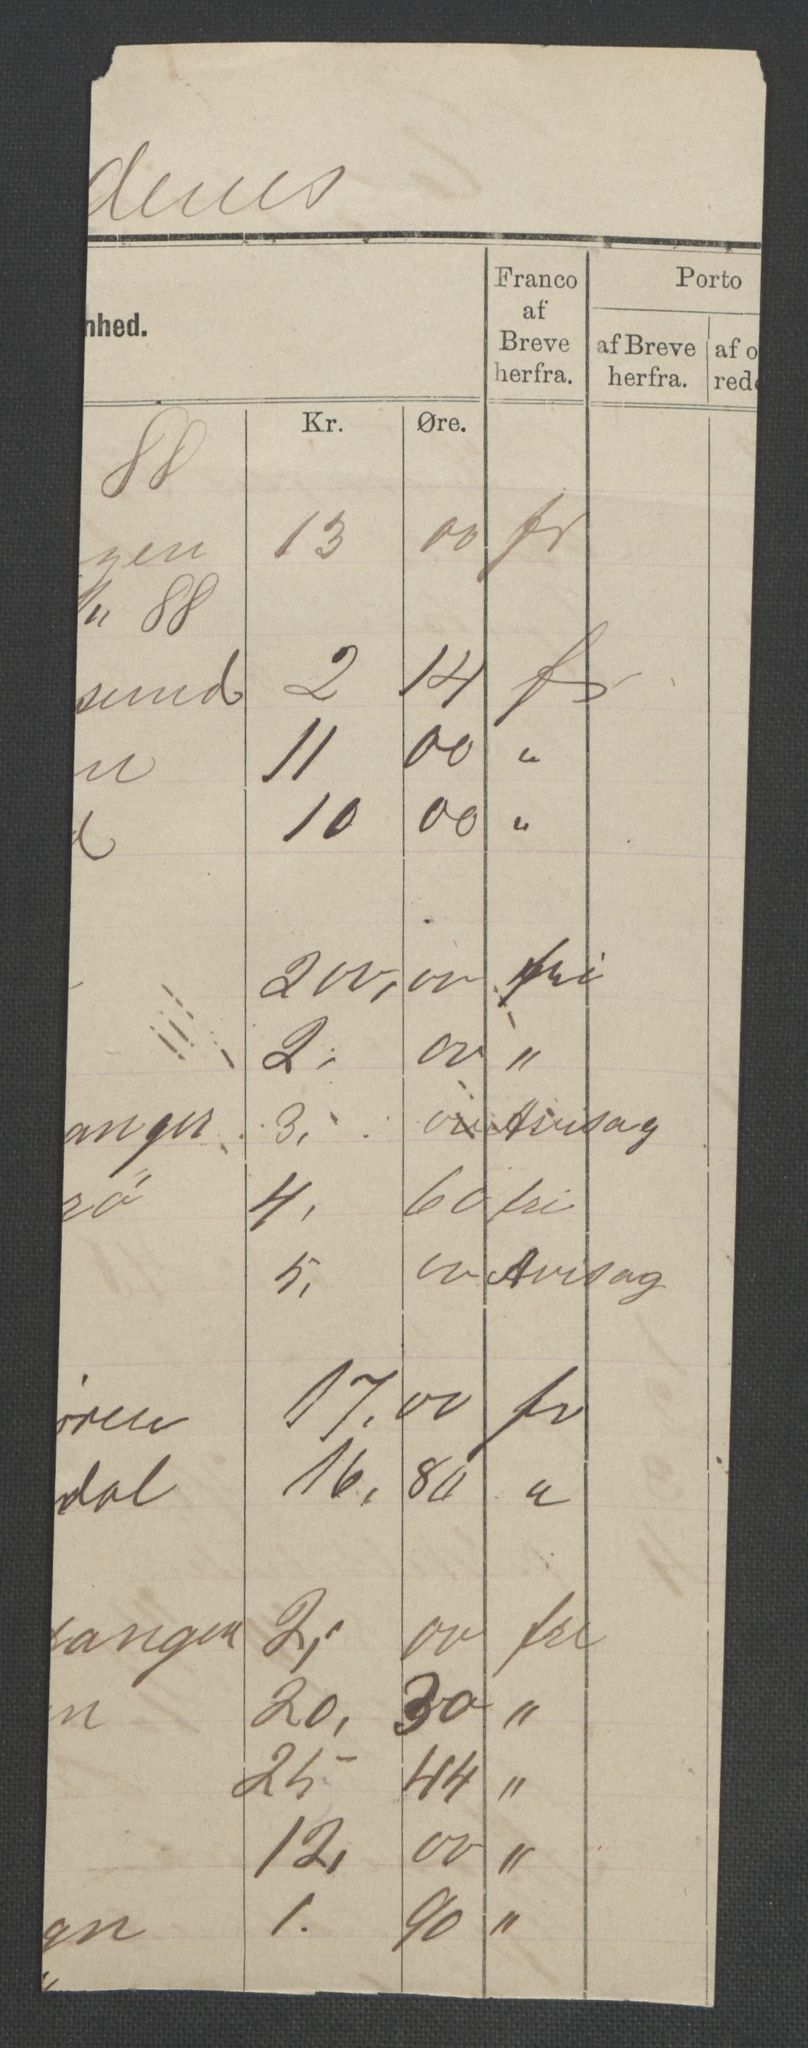 denes
nhed.
Franco af Breve herfra.
Porto
af Breve herfra.
af o
rede
Kr. Øre.
88
gen 13 00 fr
88
sund 2 14 fr
n 11 00 "
d 10 00 "
200, 00 fri
2, 00 "
anger 3, 00 Avisag
rö 4, 60 fri
5, 00 Avisag
ören 17, 00 fr
dal 16, 80 "
anger 2, 00 fri
n 20, 30 "
25 44 "
12, 00 "
gn 1. 90 "